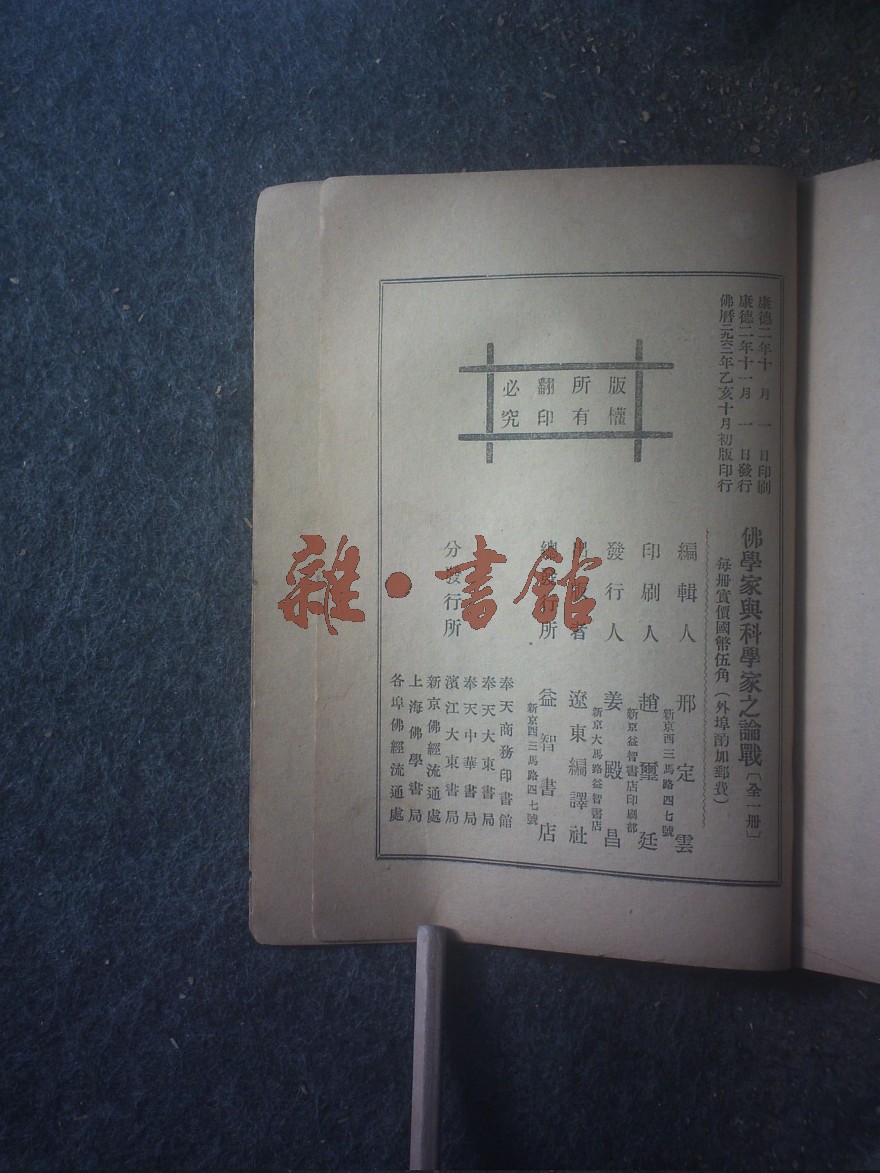 康德二年十月一日印刷
康德二年十一月一日發行
佛曆二九六二年乙亥十月初版印行
佛學家與科學家之論戰〔全一冊〕
每冊實價國幣伍角(外埠酌加郵費)
版權所有翻印必究
編輯人 邢定雲
新京西三馬路四七號
印刷人 趙璽廷
新京益智書店印刷部
發行人 姜殿昌
新京大馬路益智書店
出版者 遼東編譯社
總發行所 益智書店
新京西三馬路四七號
分發行所
奉天商務印書館
奉天大東書局
奉天中華書局
濱江大東書局
新京佛經流通處
上海佛學書局
各埠佛經流通處
雜·書館